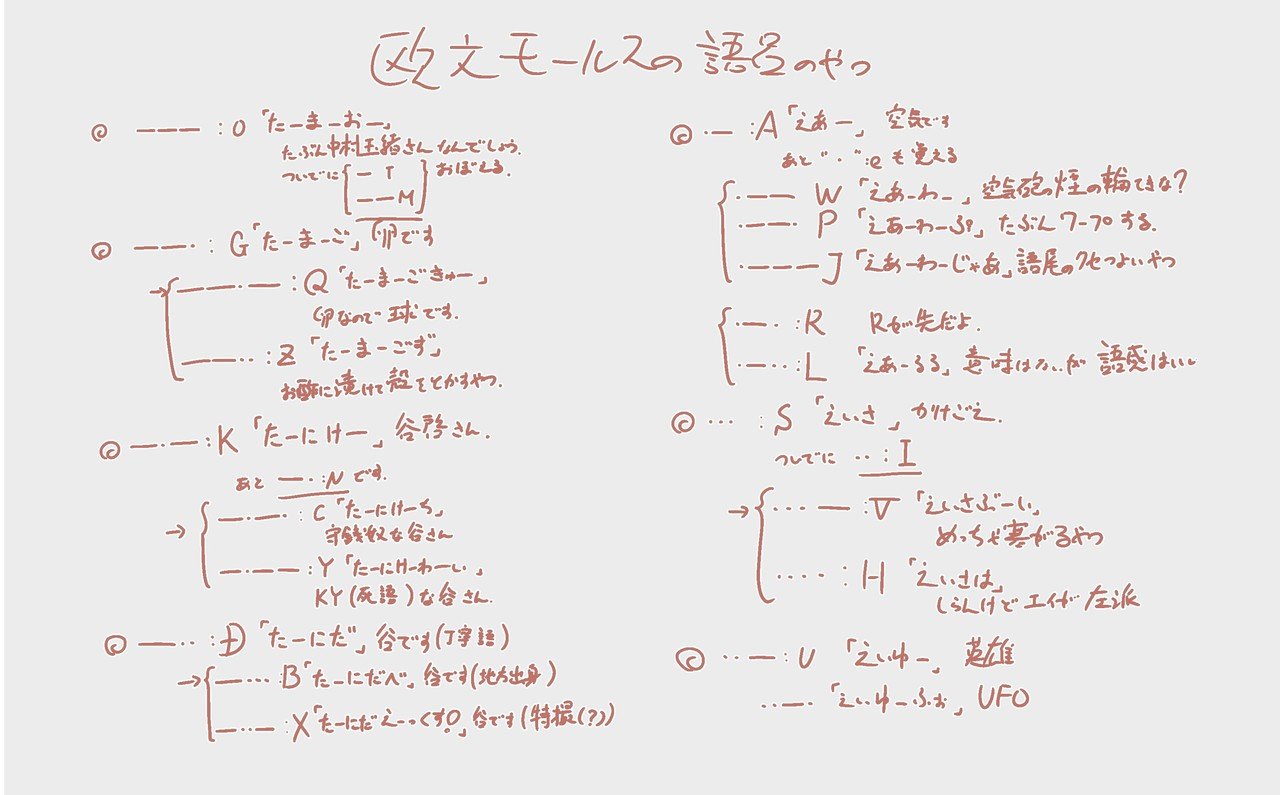 欧文モールスの語呂のやつ
◎ ーーー : O 「たーまーおー」
たぶん中村玉緒さんなんでしょう.
ついでに { ー T
ーーM } おぼえる.
◎ ーー・ : G 「たーまーご」 卵です
→ ーー・ー : Q 「たーまーごきゅー」
卵なので球です.
ーー・・ : Z 「たーまーごず」
お酢に漬けて殻をとかすやつ.
◎ ー・ー : K 「たーにけー」 谷啓さん.
あと ー・ : N です.
→ ー・ー・ : C 「たーにけーち」
守銭奴な谷さん
ー・ーー : Y 「たーにけーわーい」
KY (死語) な谷さん.
◎ ー・・ : D 「たーにだ」 谷です (丁寧語)
→ ー・・・ : B 「たーにだべ」 谷です (地方出身)
ー・・ー X 「たーにだえーっくす!」 谷です (特撮(?))
◎ ・ー : A 「えあー」 空気です
あと "・" : e も覚える
・ーー W 「えあーわー」 空気砲の煙の輪てきな?
・ーー・ P 「えあーわーぷ」 たぶんワープする.
・ーーー J 「えあーわーじゃあ」 語尾のクセつよいやつ
・ー・ : R Rが先だよ.
・ー・・ : L 「えあーるる」 意味はないが 語感はいい
◎ ・・・ : S 「えいさ」 かけごえ.
ついでに ・・ : I
→ ・・・ー : V 「えいさぶーい」
めっちゃ寒がるやつ
・・・・ : H 「えいさは」
しらんけど エイが 左派
◎ ・・ー : U 「えいゆー」 英雄
・・ー・ 「えいゆーふぉ」 UFO